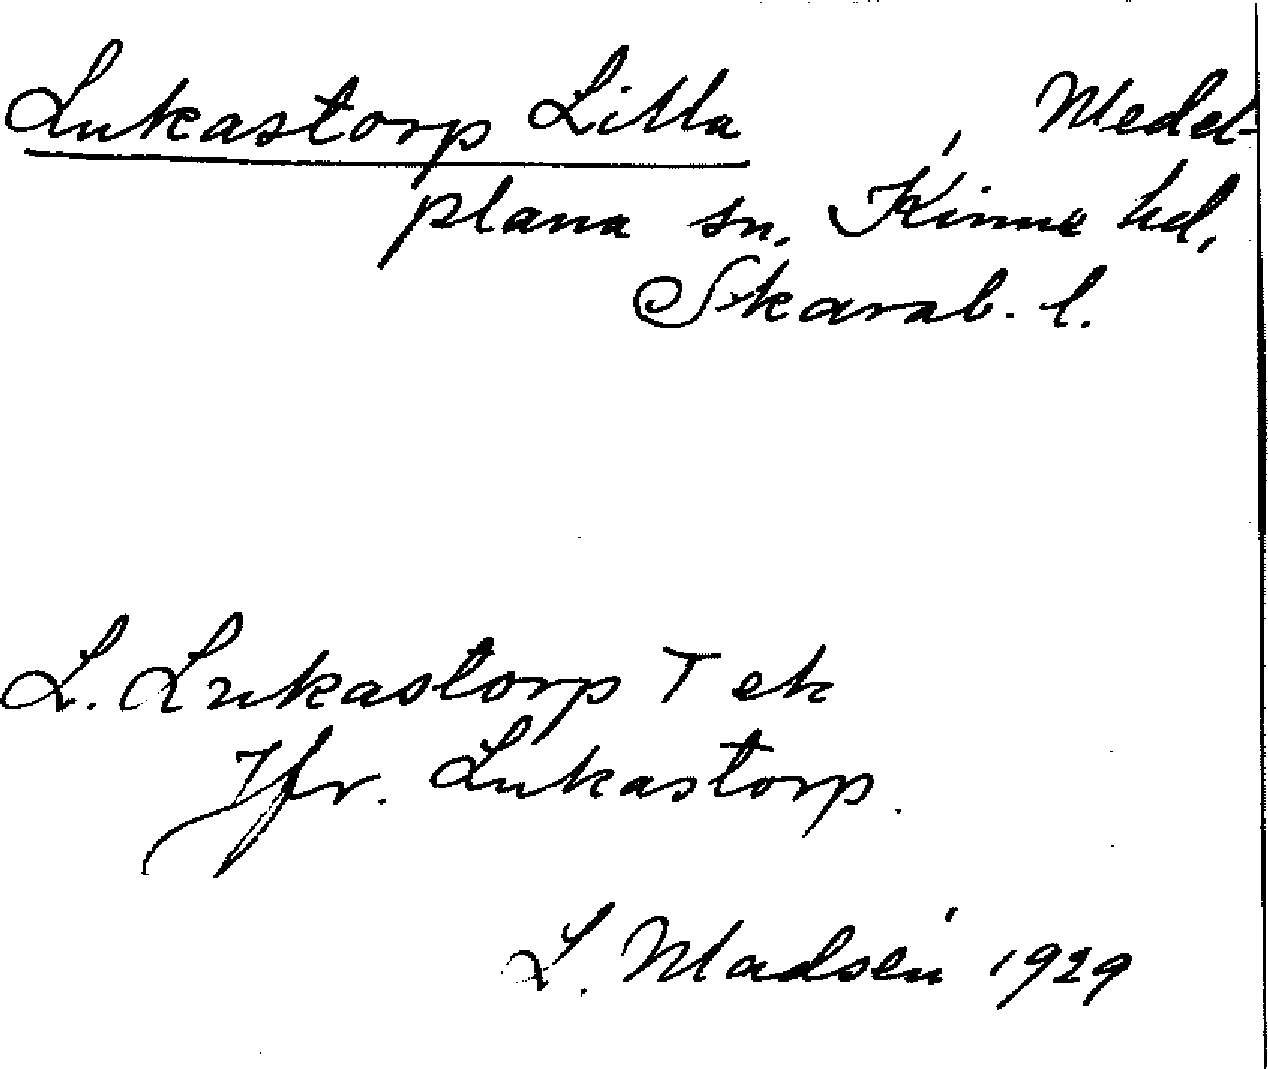 Lukastorp Lilla, Medel-
plana sn. Kinne hd,
Skarab. l.
L. Lukastorp T ek
Jfr. Lukastorp.
L. Madsén 1929